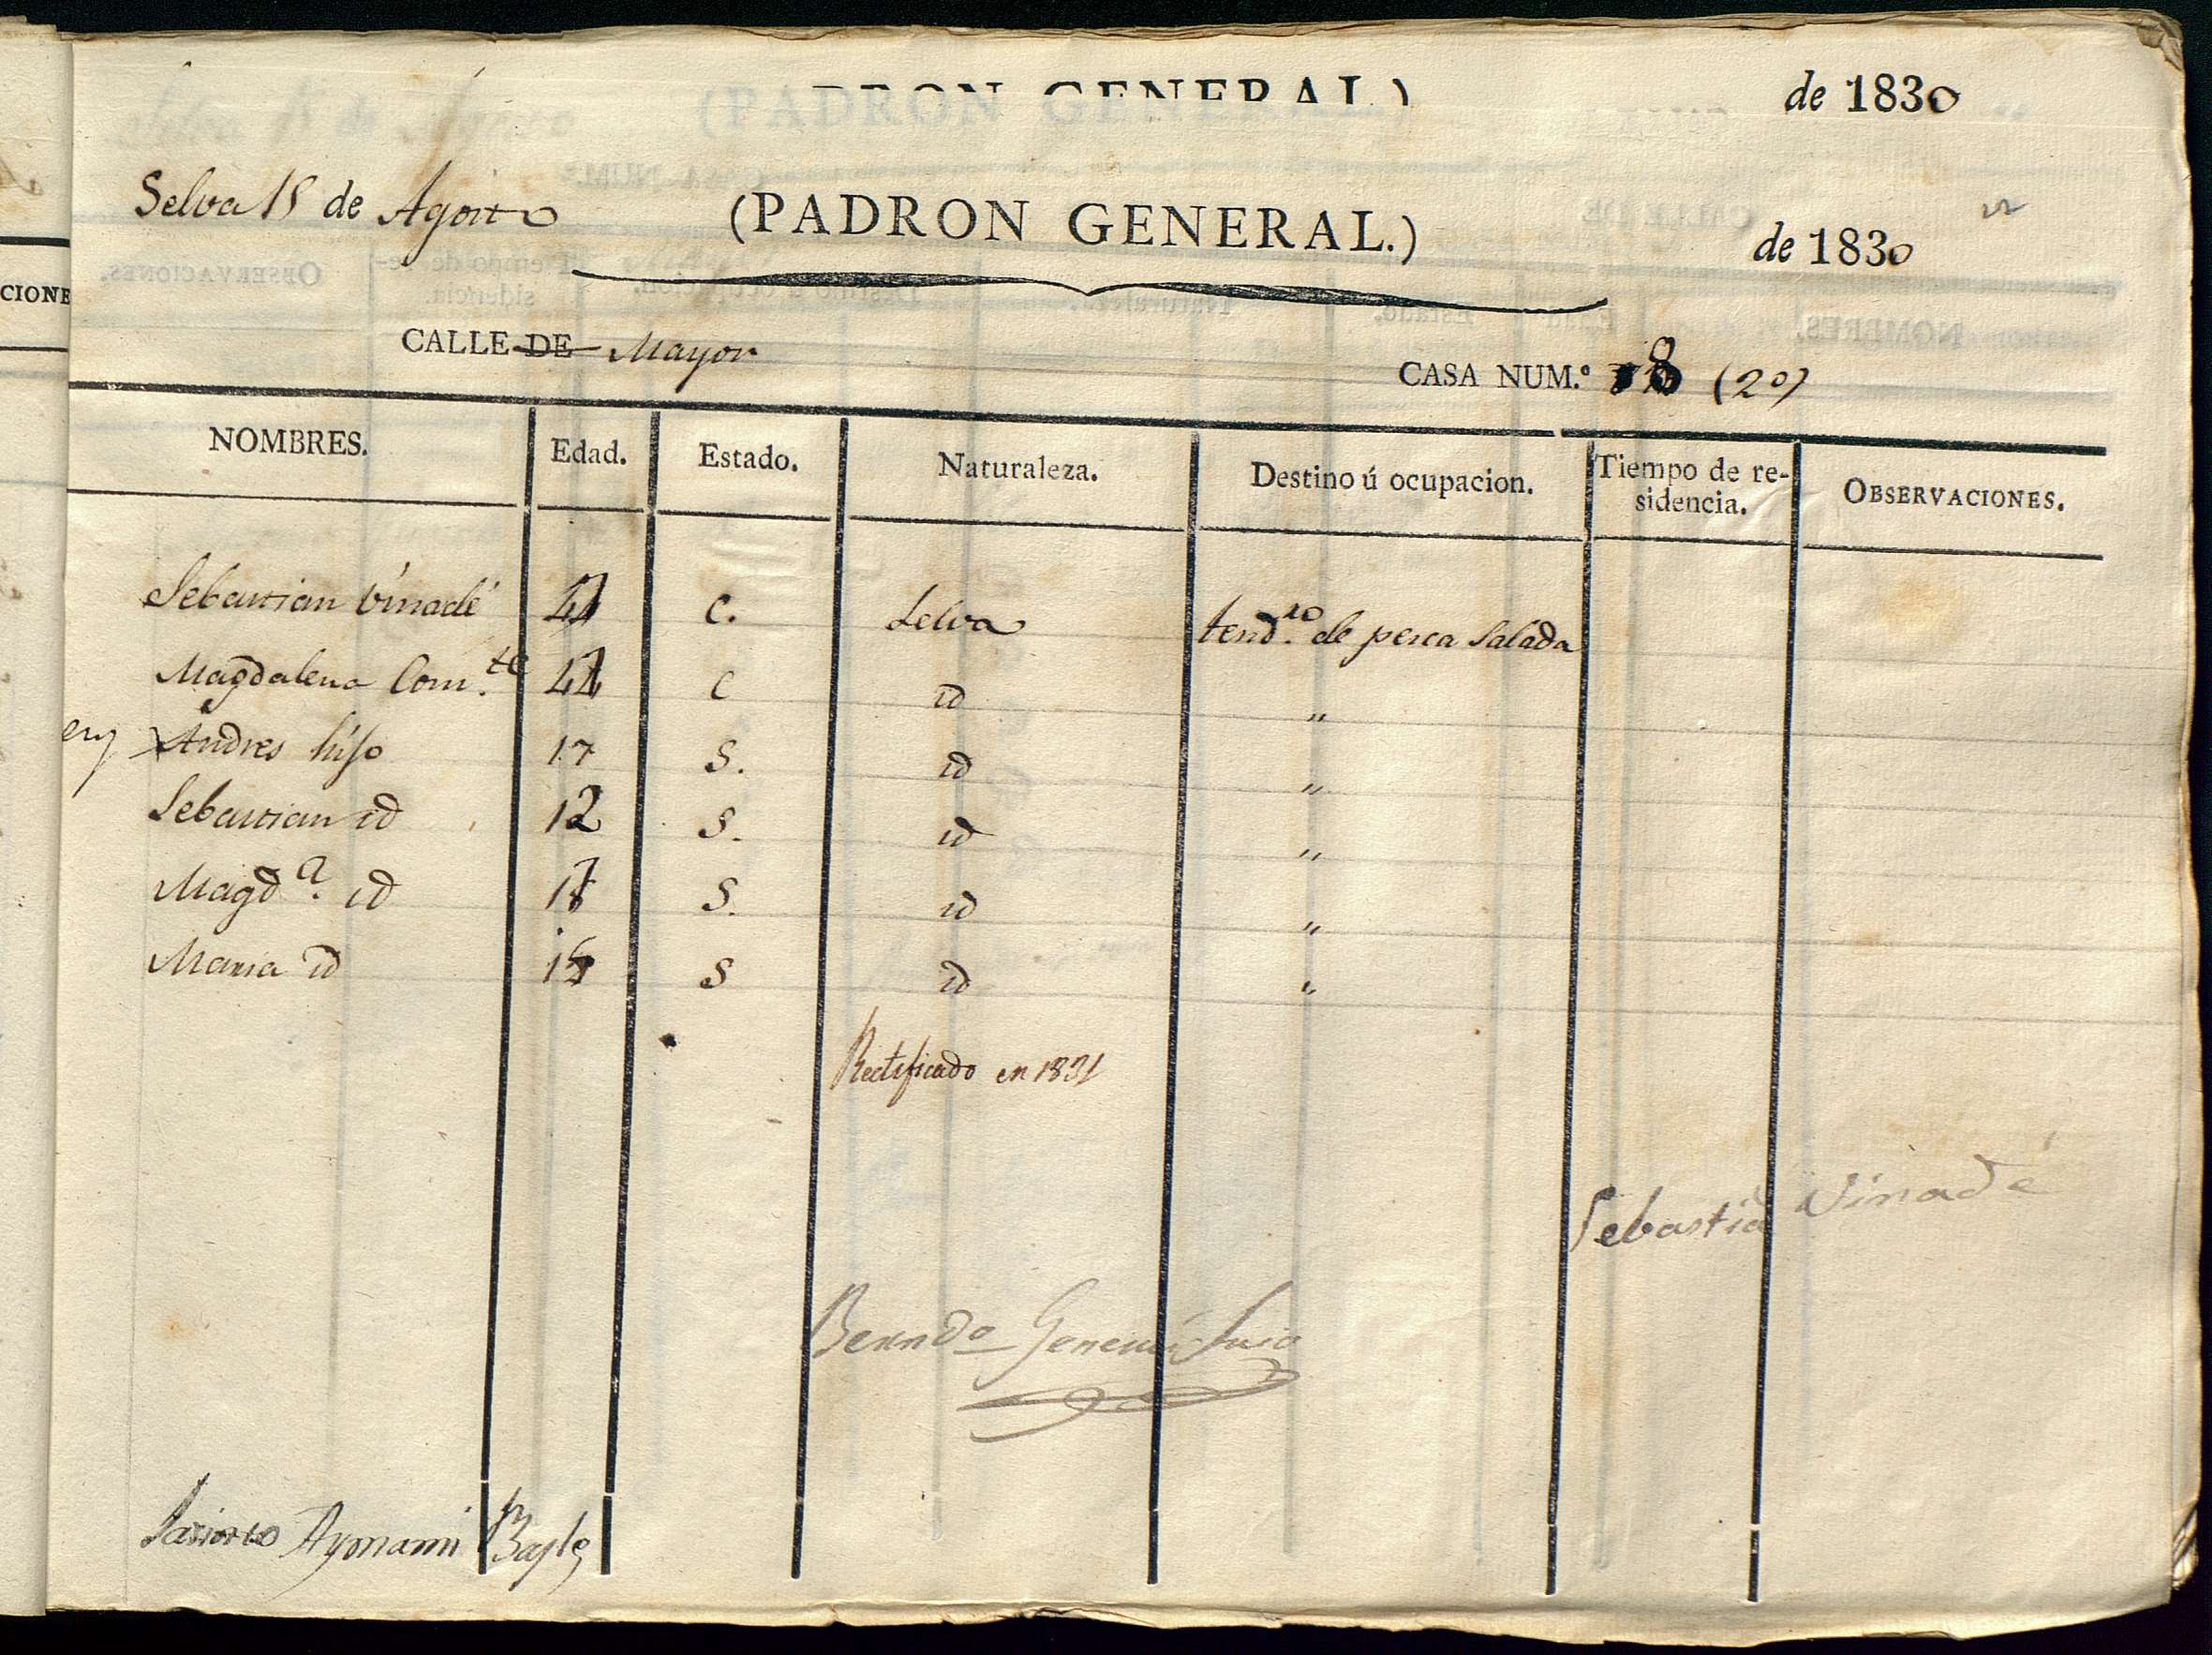 (PADRON GENERAL.)
de 1830
Selva 15 de Agosto
(PADRON GENERAL.)
de 1830
CALLE DE Mayor
CASA NUM.º 8 (20)
CIONE
NOMBRES. Edad. Estado. Naturaleza. Destino ú ocupacion. Tiempo de residencia. OBSERVACIONES.
Sebastian Vinadé C. Selva tend.ro de pesca salada
Magdalena Con.te C id "
Andres hijo 17 S. id "
Sebastian id 12 S. id "
Magd.a id S. id "
Maria id S id "
Rectificado en 1831
Sebastiá Vinadé
Berndo
Aymami Bayle